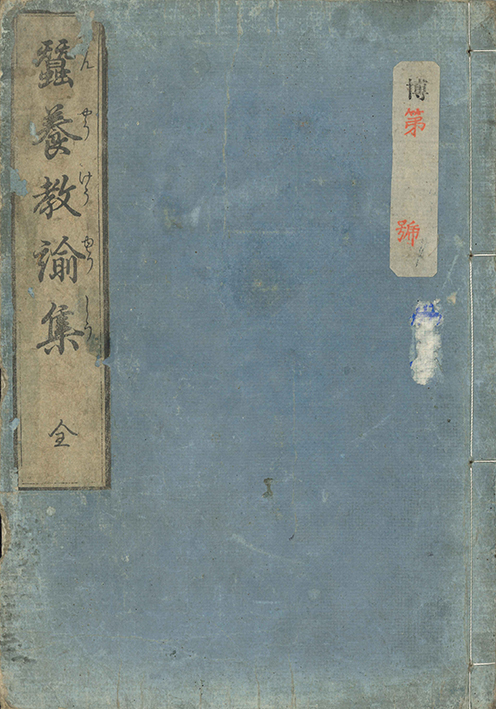 博
第
號
蠶養教諭集
全